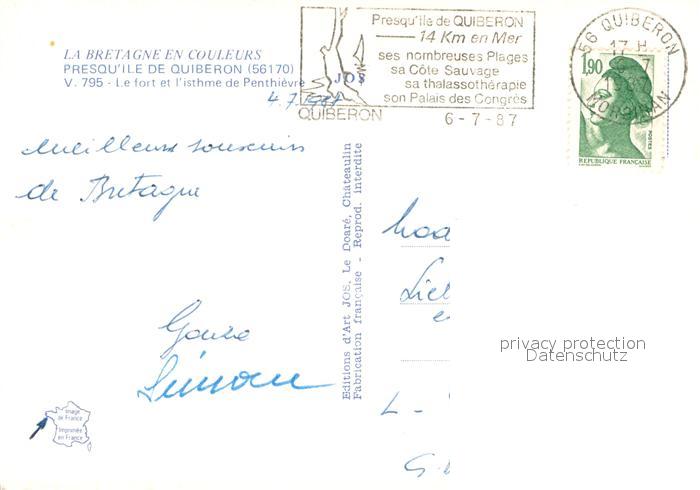 LA BRETAGNE EN COULEURS
PRESQU'ILE DE QUIBERON (56170)
V. 795 - Le fort et l'isthme de Penthièvre
4.7.1987
JOS
QUIBERON
Presqu'île de QUIBERON
14 Km en Mer
ses nombreuses Plages
sa Côte Sauvage
sa thalassothérapie
son Palais des Congrès
6-7-87
56 QUIBERON
17 H
MORBIHAN
1,90
POSTES
REPUBLIQUE FRANÇAISE
Meilleurs souvenirs
de Bretagne
Editions d'Art JOS, Le Doaré, Châteaulin
Fabrication française - Reprod. interdite
L -
privacy protection
Datenschutz
Image
de France
Imprimée
en France